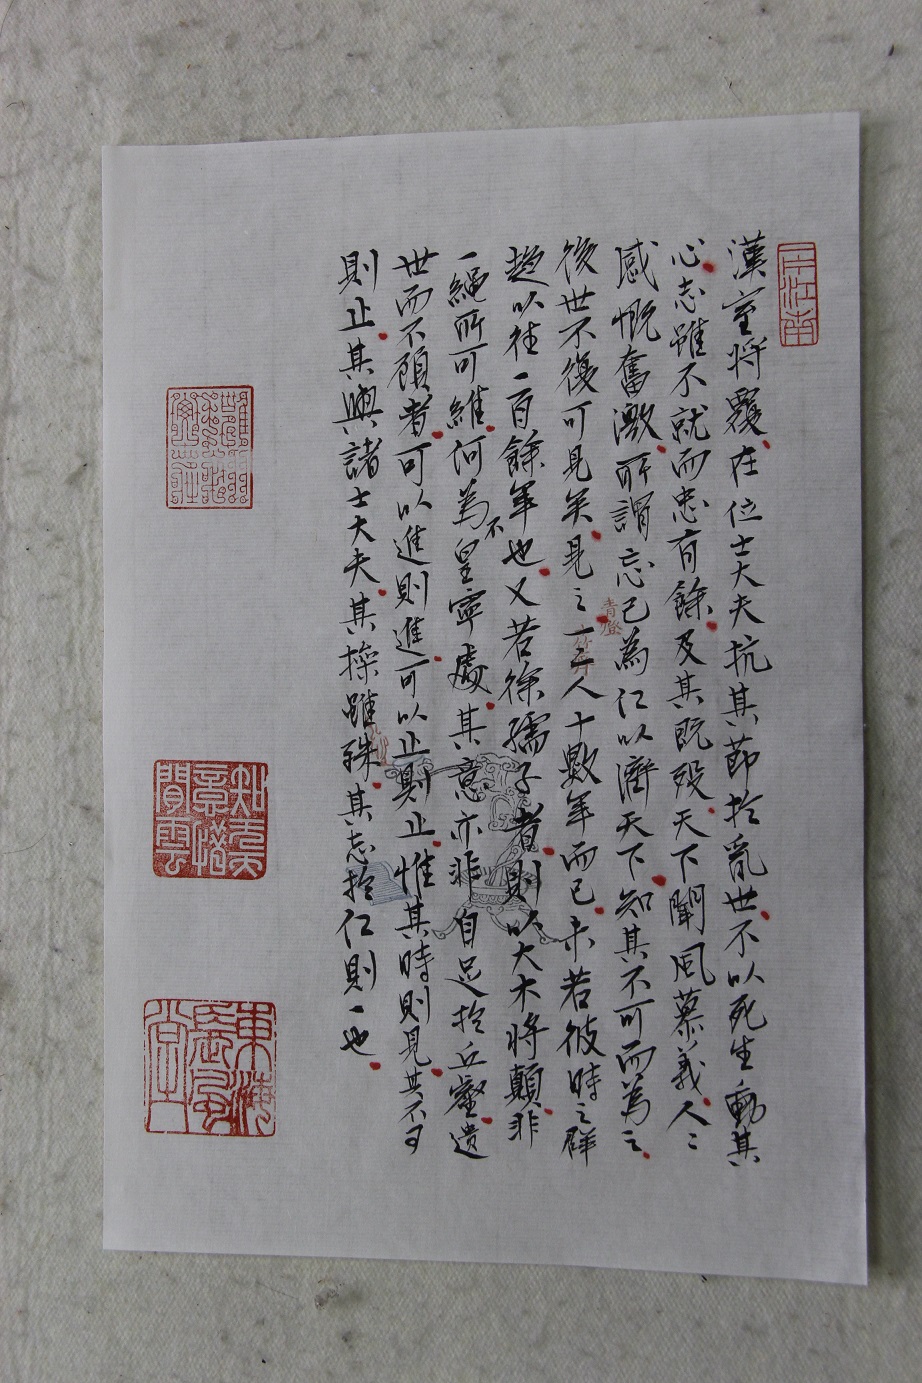 漢室将覆在位士大夫抗其莭扵亂世不以死生動其
心志雖不就而忠有餘及其既殁天下聞風慕義人〻
感慨奮激所謂忘己為仁以濟天下知其不可而為之
後世不復可見矣見之一二人十數年而已未若彼時之群
趨以往一百餘年也又若徐孺子者則以大木将顛非
一繩所可維何為不皇寧處其意亦非自足扵丘壑遗
世而不顧者可以進則進可以止則止惟其時則見其不可
則止其與諸士大夫其操雖殊其志扵仁則一也
青燈